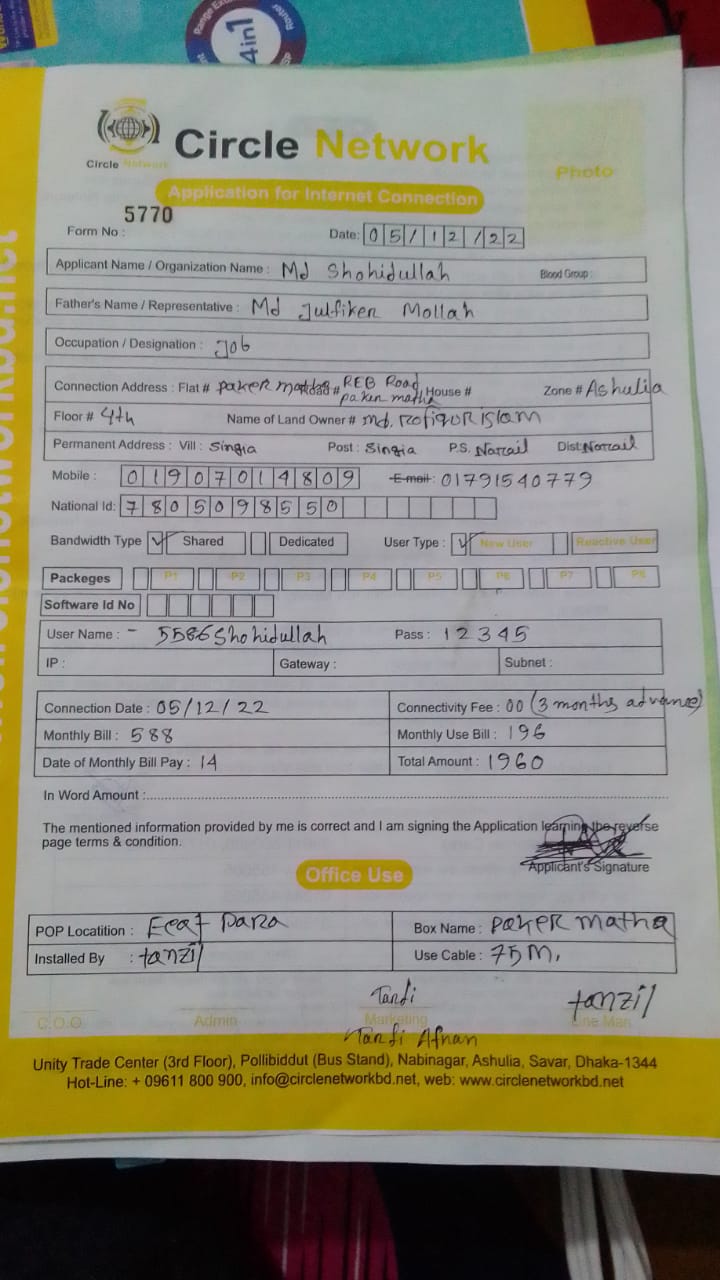 4in1
Router
Circle Network
Circle Network
Photo
Application for Internet Connection
5770
Form No :
Date: 05/12/22
Applicant Name / Organization Name : Md Shohidullah Blood Group :
Father's Name / Representative : Md Julfiker Mollah
Occupation / Designation : Job
Connection Address : Flat # paker matha Road # REB Road paker matha House # Zone # Ashulia
Floor # 4th Name of Land Owner # md. Rofiqur islam
Permanent Address : Vill : Singia Post : Singia P.S. Narrail Dist: Narrail
Mobile : 01907014809 E-mail: 01791540779
National Id: 7805098550
Bandwidth Type Shared Dedicated User Type : New User Reactive User
Packeges P1 P2 P3 P4 P5 P6 P7 P8
Software Id No
User Name : - 5586Shohidullah Pass : 12345
IP : Gateway : Subnet :
Connection Date : 05/12/22 Connectivity Fee : 00 (3 months advance)
Monthly Bill : 588 Monthly Use Bill : 196
Date of Monthly Bill Pay : 14 Total Amount : 1960
In Word Amount :
The mentioned information provided by me is correct and I am signing the Application learning the reverse
page terms & condition.
Applicant's Signature
Office Use
POP Locatition : para Box Name : paker matha
Installed By : tanzil Use Cable : 75M.
Tanfi tanzil
C.O.O Admin Marketing Line Man
Tanfi Afnan
Unity Trade Center (3rd Floor), Pollibiddut (Bus Stand), Nabinagar, Ashulia, Savar, Dhaka-1344
Hot-Line: + 09611 800 900, info@circlenetworkbd.net, web: www.circlenetworkbd.net